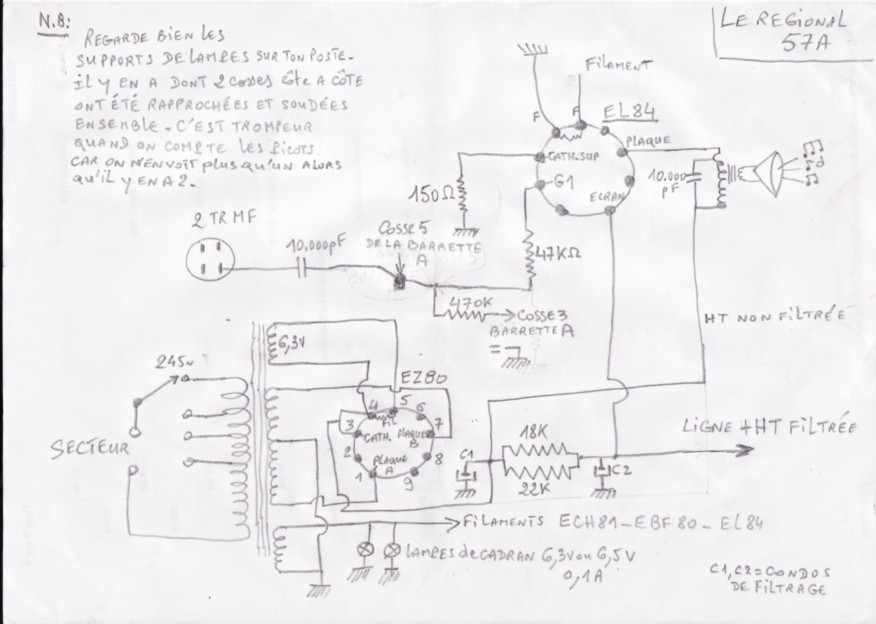 N.B:
REGARDE BIEN LES
SUPPORTS DE LAMPES SUR TON POSTE.
IL Y EN A DONT 2 COSSES CÔTE A CÔTE
ONT ÉTÉ RAPPROCHÉES ET SOUDÉES
ENSEMBLE. C'EST TROMPEUR
QUAND ON COMPTE LES PICOTS.
CAR ON N'EN VOIT PLUS QU'UN ALORS
QU'IL Y EN A 2.
LE REGIONAL
57A
FILAMENT
F F
EL84
PLAQUE
CATH.SUP
G1
ECRAN
150Ω
10.000
PF
2 TR MF
10.000pF
COSSE 5
DE LA BARRETTE
A
47KΩ
470K
COSSE 3
BARRETTE A
=
HT NON FILTRÉE
6,3V
245v
SECTEUR
EZ80
4 5 6
FIL
3 7
CATH. PLAQUE
B
2 PLAQUE 8
A
1 9
C1
18K
22K
C2
LIGNE + HT FILTRÉE
FILAMENTS ECH81-EBF80-EL84
LAMPES de CADRAN 6,3V ou 6,5V
0,1A
C1,C2=CONDOS
DE FILTRAGE